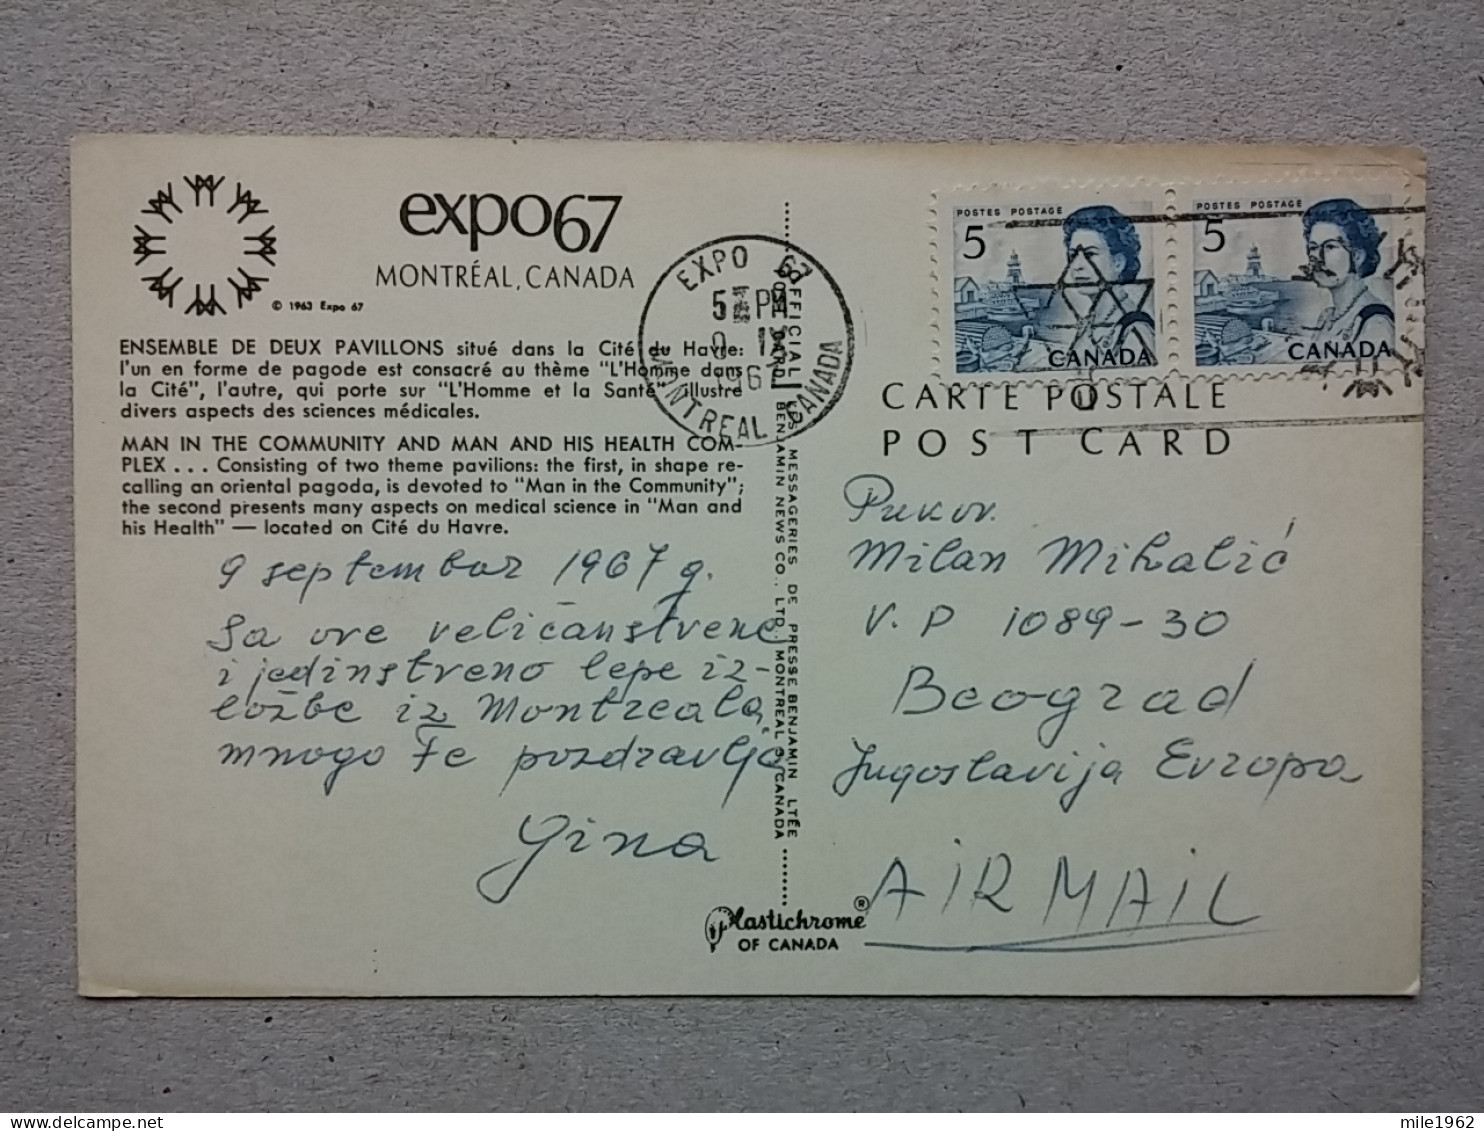 expo67
MONTRÉAL, CANADA
© 1963 Expo 67
ENSEMBLE DE DEUX PAVILLONS situé dans la Cité du Havre:
l'un en forme de pagode est consacré au thème "L'Homme dans
la Cité", l'autre, qui porte sur "L'Homme et la Santé" illustre
divers aspects des sciences médicales.
MAN IN THE COMMUNITY AND MAN AND HIS HEALTH COM-
PLEX . . . Consisting of two theme pavilions: the first, in shape re-
calling an oriental pagoda, is devoted to "Man in the Community";
the second presents many aspects on medical science in "Man and
his Health" — located on Cité du Havre.
9 septembar 1967 g.
Sa ove veličanstvene
i jedinstveno lepe iz-
ložbe iz Montreala,
mnogo te pozdravlja
Gina
EXPO 67
5 PM
MONTREAL CANADA
OFFICIAL POST CARD
LES MESSAGERIES DE PRESSE BENJAMIN LTÉE
BENJAMIN NEWS CO., LTD., MONTREAL 9, CANADA
Plastichrome ®
OF CANADA
POSTES POSTAGE
5
CANADA
POSTES POSTAGE
5
CANADA
CARTE POSTALE
POST CARD
Pukov.
Milan Mihalić
V. P 1089-30
Beograd
Jugoslavija Evropa
AIR MAIL
mile1962